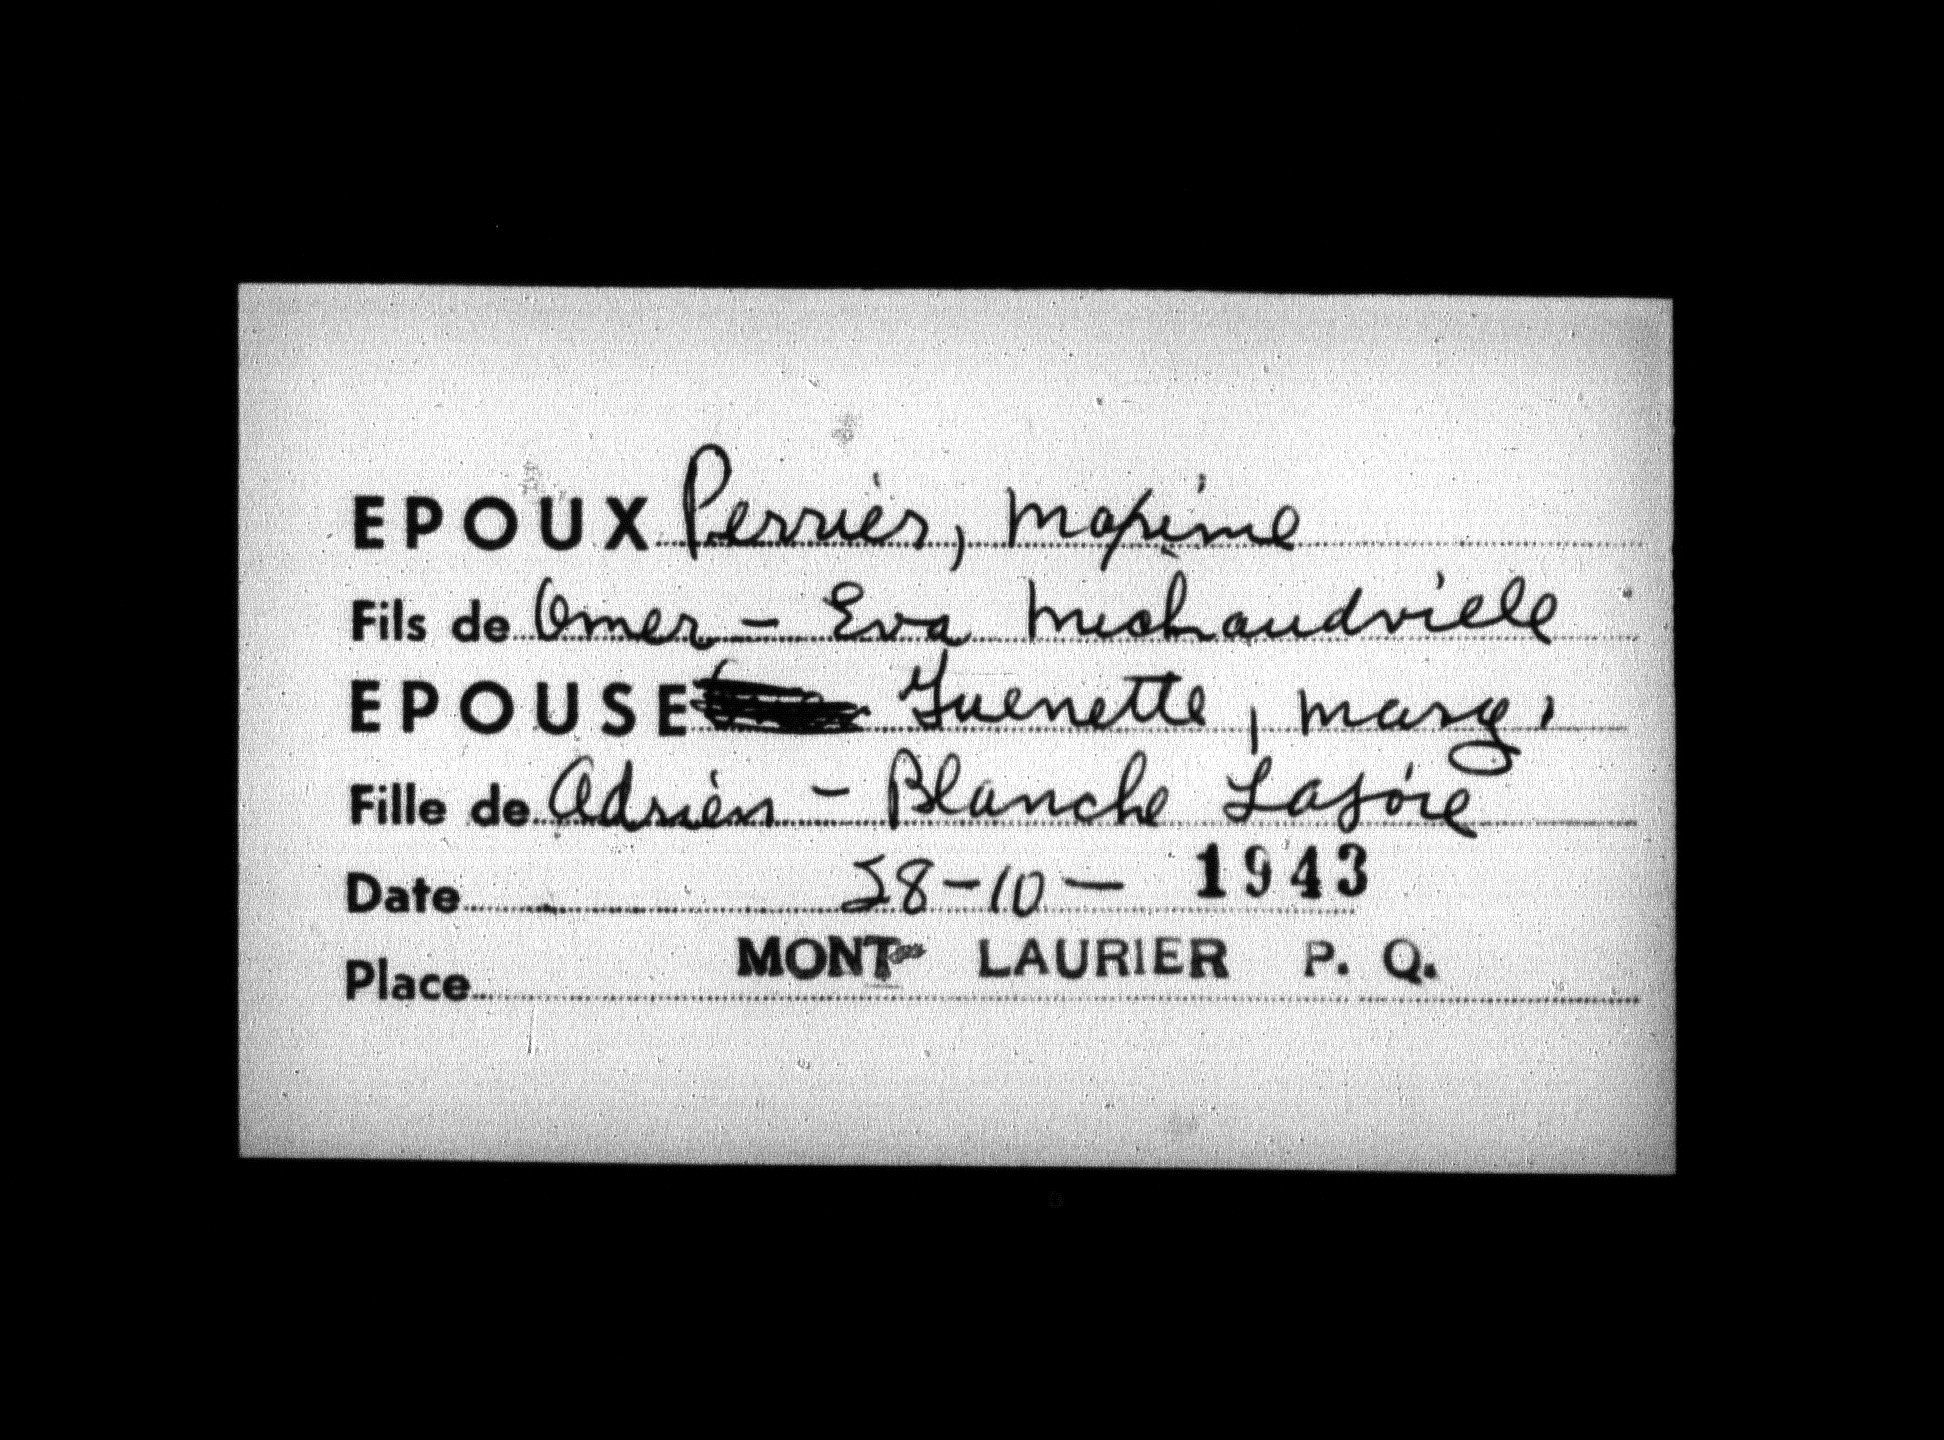 EPOUX Perrier, Maxime
Fils de Omer - Eva Michaudville
EPOUSE Guenette, Marg.
Fille de Adrien - Blanche Lajoie
Date 28-10- 1943
Place MONT LAURIER P. Q.